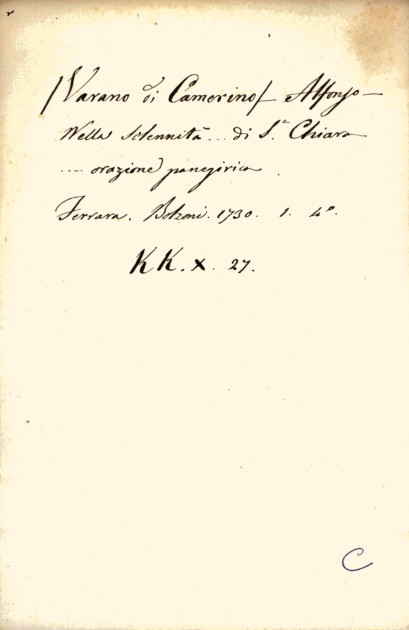 /Varano di Camerino/ - Alfonso -
Nella Solennità ... di S.ª Chiara
.... orazione panegirica.
Ferrara. Bolzoni. 1730. 1. 4º.
KK. X. 27.
C